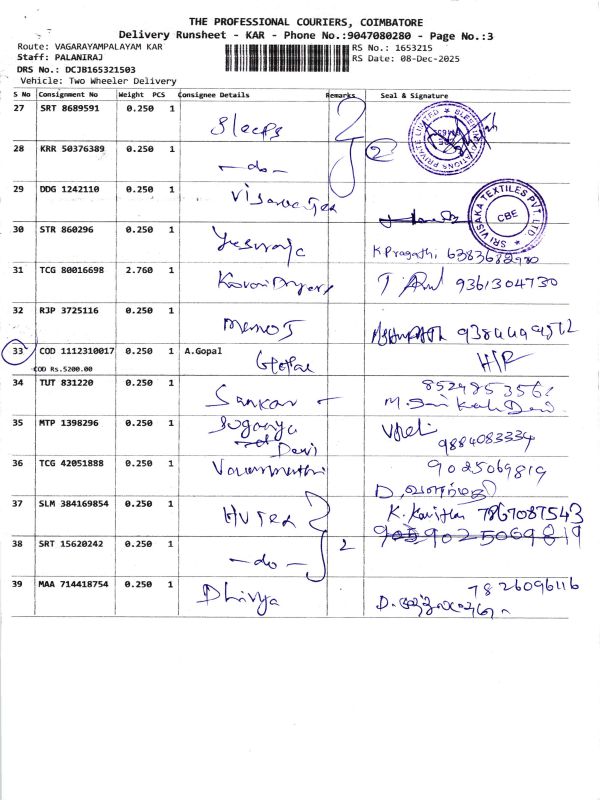 THE PROFESSIONAL COURIERS, COIMBATORE
Delivery Runsheet - KAR - Phone No.:9047080280 - Page No.:3
Route: VAGARAYAMPALAYAM KAR RS No.: 1653215
Staff: PALANIRAJ RS Date: 08-Dec-2025
DRS No.: DCJB165321503
Vehicle: Two Wheeler Delivery
S No Consignment No Weight PCS Consignee Details Remarks Seal & Signature
27 SRT 8689591 0.250 1 Sleeps
28 KRR 50376389 0.250 1 -do- 2
29 DDG 1242110 0.250 1
SRI VISAKA TEXTILES PVT. LTD. CBE
30 STR 860296 0.250 1 K Pragathi
31 TCG 80016698 2.760 1 9361304730
32 RJP 3725116 0.250 1
33 COD 1112310017 0.250 1 A.Gopal Gopal
COD Rs.5200.00
34 TUT 831220 0.250 1 Sankar
35 MTP 1398296 0.250 1 Devi 9884083334
36 TCG 42051888 0.250 1 9025069819
37 SLM 384169854 0.250 1 K. Kavitha 7867087543
38 SRT 15620242 0.250 1 -do- 2 9025069819
39 MAA 714418754 0.250 1 Dhivya 7826096116